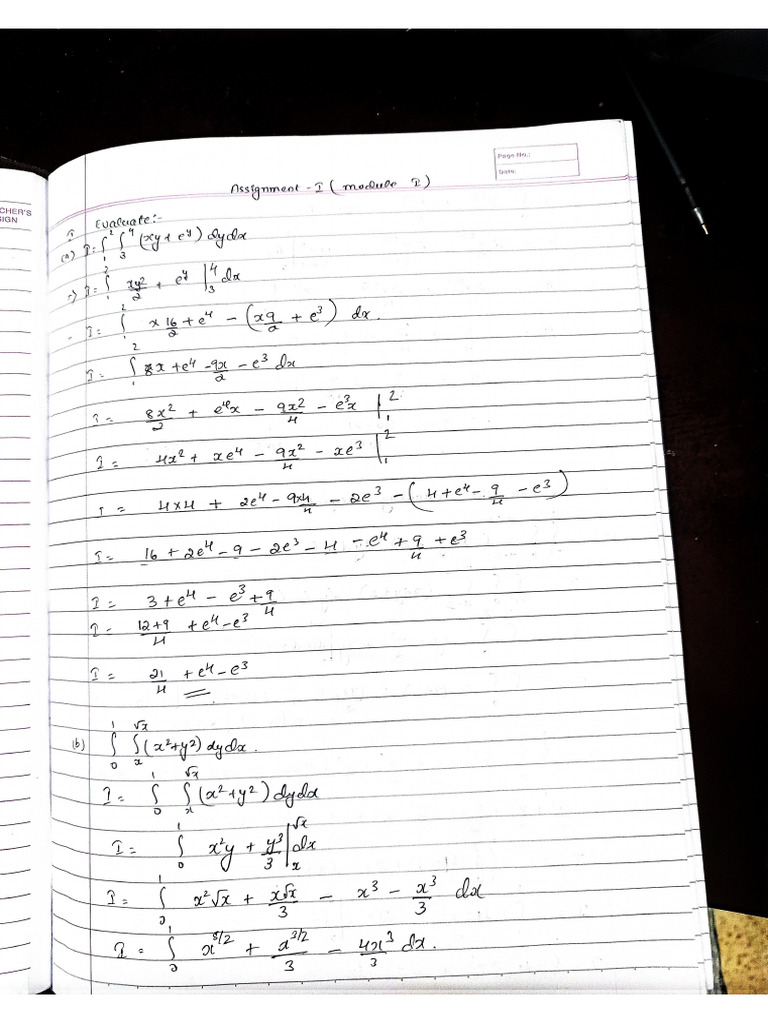 Page No.:
Date:
CHER'S
SIGN
Assignment - I ( module I )
I Evaluate:-
(a) I = ∫₁² ∫₃⁴ (xy + e^y) dydx
=) I = ∫₁² xy²/2 + e^y |₃⁴ dx
- I = ∫₁² x 16/2 + e⁴ - (x9/2 + e³) dx.
I = ∫₁² 8x + e⁴ - 9x/2 - e³ dx
I = 8x²/2 + e⁴x - 9x²/4 - e³x |₁²
I = 4x² + xe⁴ - 9x²/4 - xe³ |₁²
I = 4×4 + 2e⁴ - 9×4/4 - 2e³ - (4 + e⁴ - 9/4 - e³)
I = 16 + 2e⁴ - 9 - 2e³ - 4 - e⁴ + 9/4 + e³
I = 3 + e⁴ - e³ + 9/4
I = 12+9/4 + e⁴ - e³
I = 21/4 + e⁴ - e³
(b) ∫₀¹ ∫ₓ^√x (x² + y²) dydx.
I = ∫₀¹ ∫ₓ^√x (x² + y²) dydx
I = ∫₀¹ x²y + y³/3 |ₓ^√x dx
I = ∫₀¹ x²√x + x√x/3 - x³ - x³/3 dx
I = ∫₀¹ x^5/2 + x^3/2/3 - 4x³/3 dx.